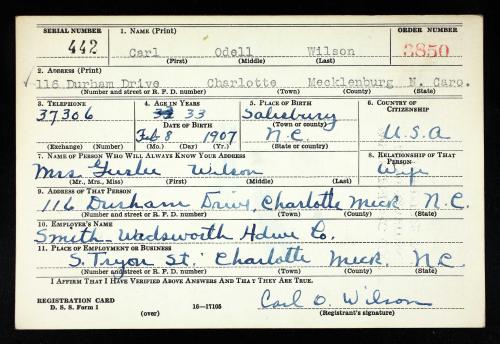 SERIAL NUMBER 1. NAME (Print) ORDER NUMBER
442 Carl Odell Wilson 3850
(First) (Middle) (Last)
2. ADDRESS (Print)
116 Durham Drive Charlotte Mecklenburg N. Caro.
(Number and street or R. F. D. number) (Town) (County) (State)
3. TELEPHONE 4. AGE IN YEARS 5. PLACE OF BIRTH 6. COUNTRY OF CITIZENSHIP
37306 33 Salisbury
DATE OF BIRTH (Town or county)
Feb 8 1907 N.C. U.S.A
(Exchange) (Number) (Mo.) (Day) (Yr.) (State or country)
7. NAME OF PERSON WHO WILL ALWAYS KNOW YOUR ADDRESS 8. RELATIONSHIP OF THAT PERSON
Mrs. Wilson Wife
(Mr., Mrs., Miss) (First) (Middle) (Last)
9. ADDRESS OF THAT PERSON
116 Durham Drive, Charlotte Meck N.C.
(Number and street or R. F. D. number) (Town) (County) (State)
10. EMPLOYER'S NAME
Smith-Wadsworth Hdwe Co.
11. PLACE OF EMPLOYMENT OR BUSINESS
S. Tryon St. Charlotte Meck. N.C.
(Number and street or R. F. D. number) (Town) (County) (State)
I AFFIRM THAT I HAVE VERIFIED ABOVE ANSWERS AND THAT THEY ARE TRUE.
Carl O. Wilson
REGISTRATION CARD
D. S. S. Form 1 (over) 16-17105 (Registrant's signature)